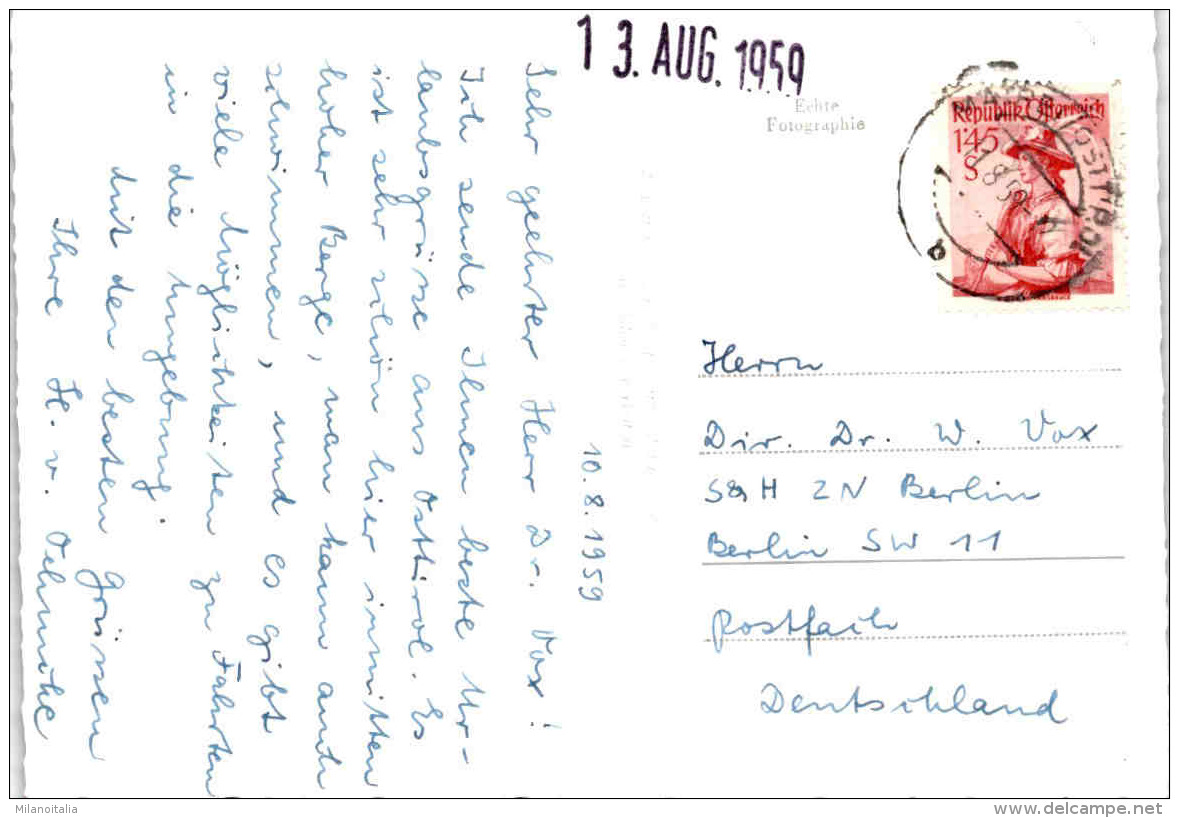 13. AUG. 1959
Echte
Fotographie
Republik Österreich
1'45
S
10.8.1959
Sehr geehrter Herr Dr. Vox!
Ich sende Ihnen beste Ur-
laubsgrüsse aus Osttirol. Es
ist sehr schön hier inmitten
hoher Berge, man kann auch
schwimmen, und es gibt
viele Möglichkeiten zu Fahrten
in die Umgebung.
Mit den besten Grüssen
Ihre H. v. Oelmcke
Herrn
Dir. Dr. W. Vox
S&H ZN Berlin
Berlin SW 11
Postfach
Deutschland
Milanoitalia
delcampe.net